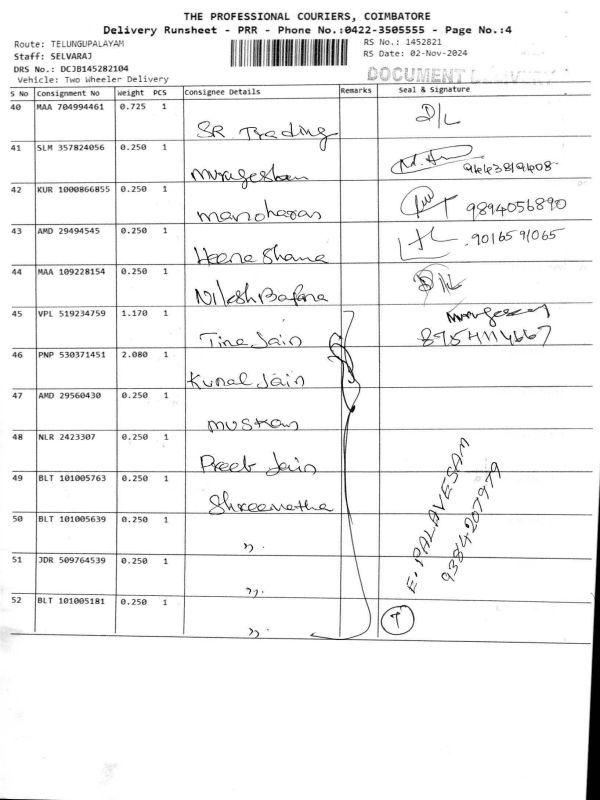 THE PROFESSIONAL COURIERS, COIMBATORE
Delivery Runsheet - PRR - Phone No.:0422-3505555 - Page No.:4
Route: TELUNGUPALAYAM
Staff: SELVARAJ
DRS No.: DCJB145282104
Vehicle: Two Wheeler Delivery
RS No.: 1452821
RS Date: 02-Nov-2024
DOCUMENT DELIVERY
S No Consignment No Weight PCS Consignee Details Remarks Seal & Signature
40 MAA 704994461 0.725 1 SR Trading D/L
41 SLM 357824056 0.250 1
42 KUR 1000866855 0.250 1 manoharan 9894056890
43 AMD 29494545 0.250 1 Heena Shama 9016591065
44 MAA 109228154 0.250 1 Nilesh Bafana
45 VPL 519234759 1.170 1 Tina Jain 8754114667
46 PNP 530371451 2.080 1 Kunal Jain
47 AMD 29560430 0.250 1 muskan
48 NLR 2423307 0.250 1 Preet Jain
49 BLT 101005763 0.250 1 Shreenatha
50 BLT 101005639 0.250 1 ,,.
51 JDR 509764539 0.250 1 ,,.
52 BLT 101005181 0.250 1 ,,
E. PALAVESAM
9384207979